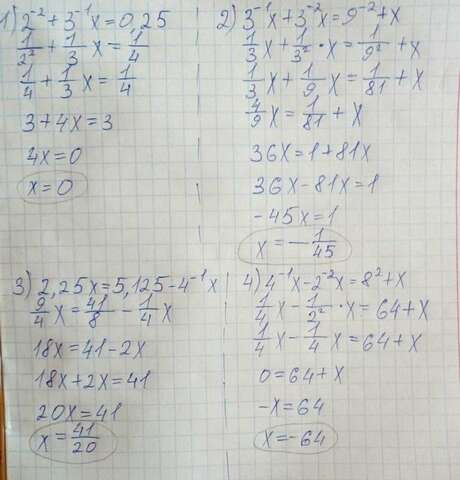 1) 2⁻² + 3⁻¹x = 0,25
1/2² + 1/3 x = 1/4
1/4 + 1/3 x = 1/4
3 + 4x = 3
4x = 0
x = 0
2) 3⁻¹x + 3⁻²x = 9⁻² + x
1/3 x + 1/3² · x = 1/9² + x
1/3 x + 1/9 x = 1/81 + x
4/9 x = 1/81 + x
36x = 1 + 81x
36x - 81x = 1
-45x = 1
x = - 1/45
3) 2,25x = 5,125 - 4⁻¹x
9/4 x = 41/8 - 1/4 x
18x = 41 - 2x
18x + 2x = 41
20x = 41
x = 41/20
4) 4⁻¹x - 2⁻²x = 8² + x
1/4 x - 1/2² · x = 64 + x
1/4 x - 1/4 x = 64 + x
0 = 64 + x
-x = 64
x = -64